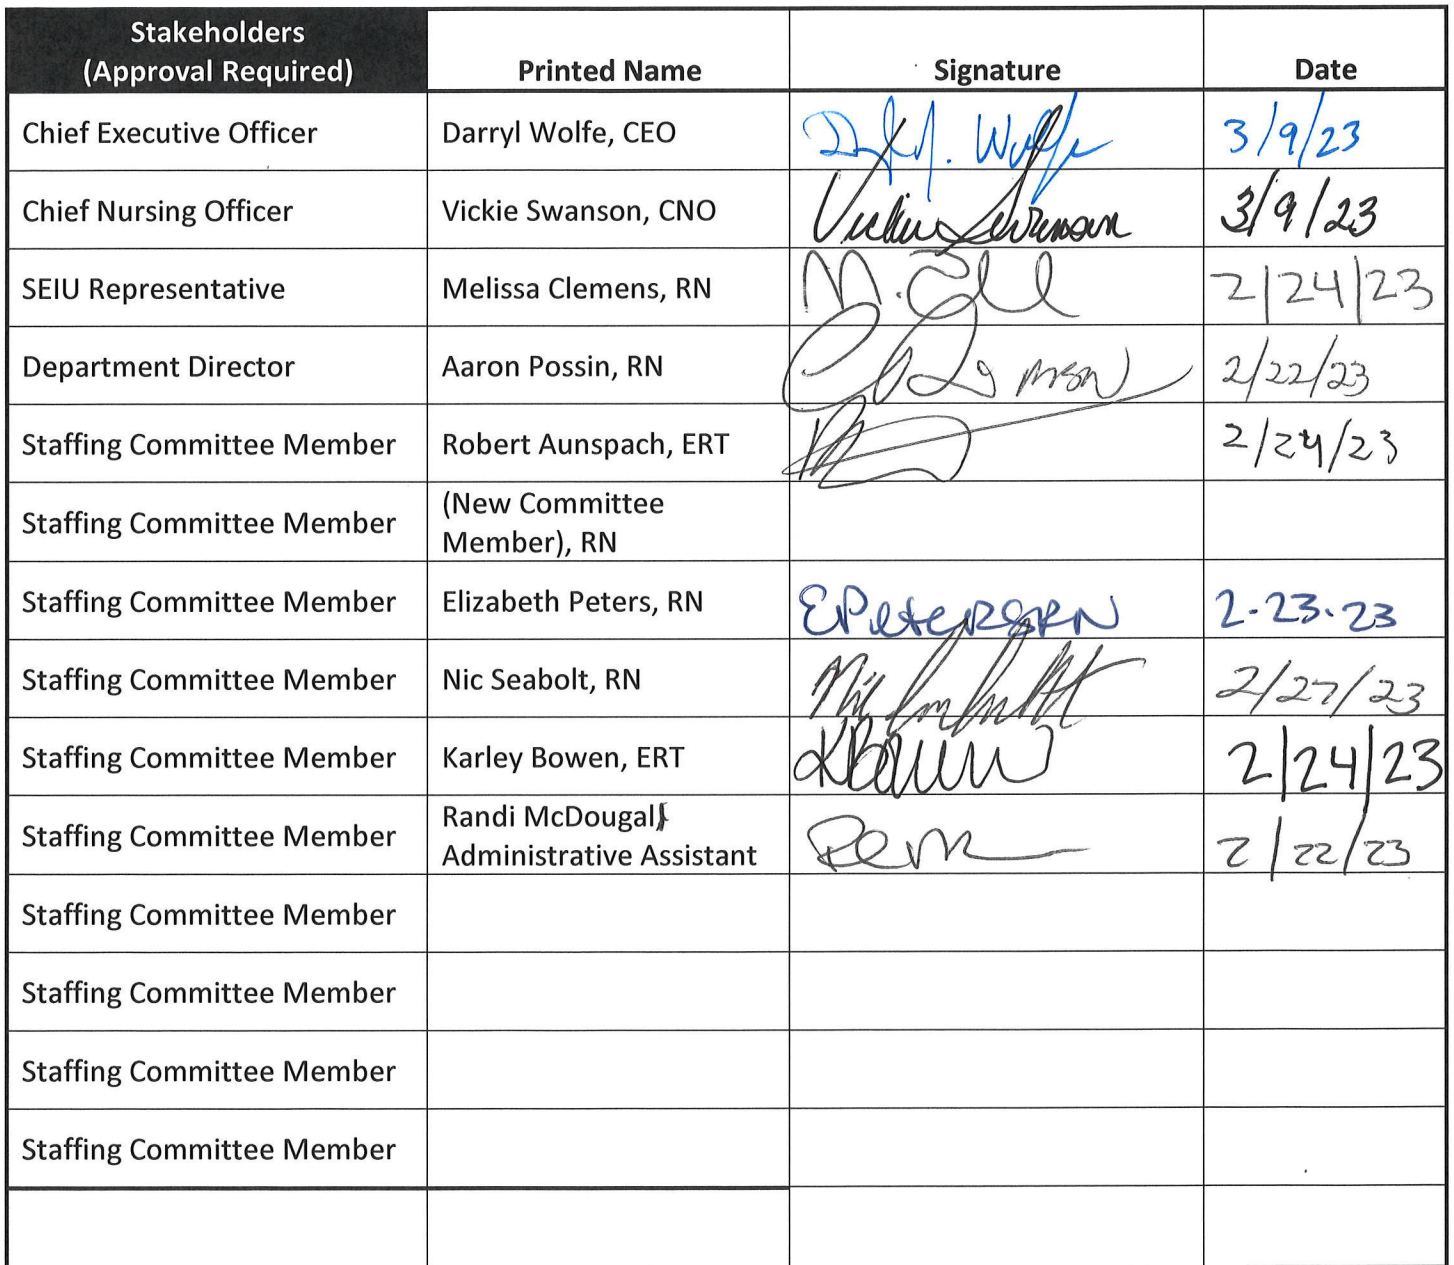 Stakeholders
(Approval Required) Printed Name Signature Date
Chief Executive Officer Darryl Wolfe, CEO 3/9/23
Chief Nursing Officer Vickie Swanson, CNO Vickie Swanson 3/9/23
SEIU Representative Melissa Clemens, RN 2/24/23
Department Director Aaron Possin, RN MSN 2/22/23
Staffing Committee Member Robert Aunspach, ERT 2/24/23
Staffing Committee Member (New Committee
Member), RN
Staffing Committee Member Elizabeth Peters, RN EPeters RN 2-23-23
Staffing Committee Member Nic Seabolt, RN 2/27/23
Staffing Committee Member Karley Bowen, ERT KBowen 2/24/23
Staffing Committee Member Randi McDougal,
Administrative Assistant 2/22/23
Staffing Committee Member
Staffing Committee Member
Staffing Committee Member
Staffing Committee Member